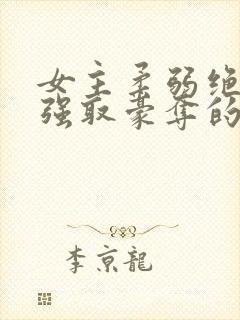 女主柔弱绝
强取豪夺的
李京龍